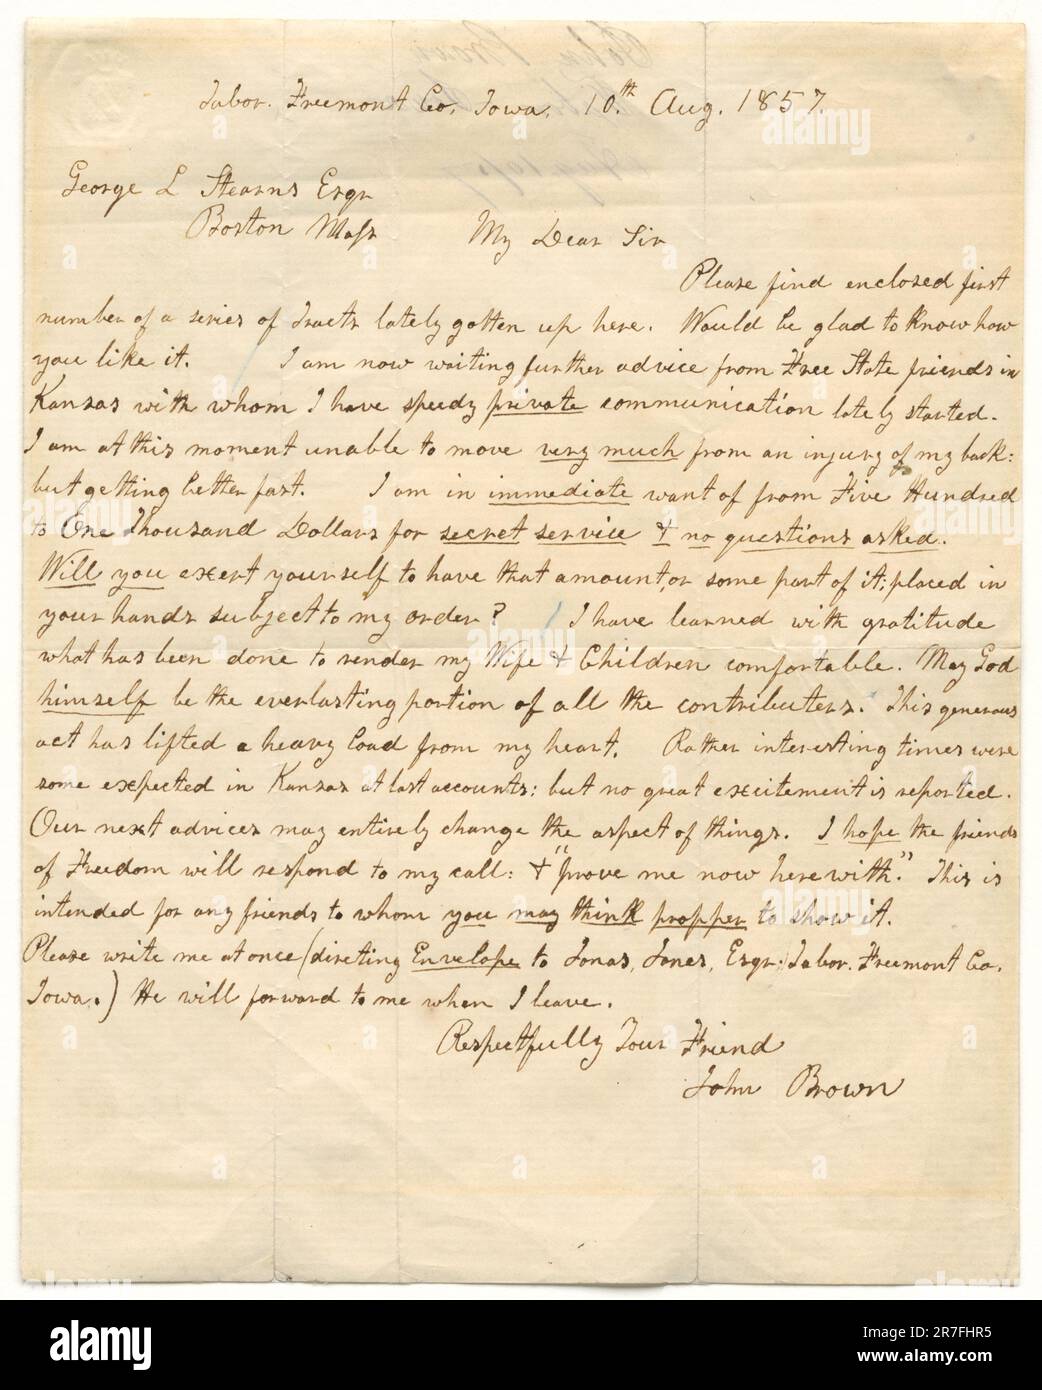 Tabor. Freemont Co. Iowa. 10th. Aug. 1857.
George L Stearns Esqr
Boston Mass
My Dear Sir
Please find enclosed first
number of a series of Tracts lately gotten up here. Would be glad to know how
you like it. I am now waiting further advice from Free State friends in
Kansas with whom I have speedy private communication lately started.
I am at this moment unable to move very much from an injury of my back:
but getting better fast. I am in immediate want of from Five Hundred
to One Thousand Dollars for secret service & no questions asked.
Will you exert yourself to have that amount, or some part of it; placed in
your hands subject to my order? I have learned with gratitude
what has been done to render my Wife & Children comfortable. May God
himself be the everlasting portion of all the contributers. This generous
act has lifted a heavy load from my heart. Rather interesting times were
some expected in Kansas at last accounts: but no great excitement is reported.
Our next advices may entirely change the aspect of things. I hope the friends
of Freedom will respond to my call: & "prove me now herewith." This is
intended for any friends to whom you may think propper to show it.
Please write me at once (directing Envelope to Jonas, Jones, Esqr. Tabor. Freemont Co.
Iowa.) He will forward to me when I leave.
Respectfully Your Friend
John Brown
alamy
a
alamy
Image ID: 2R7FHR5
www.alamy.com